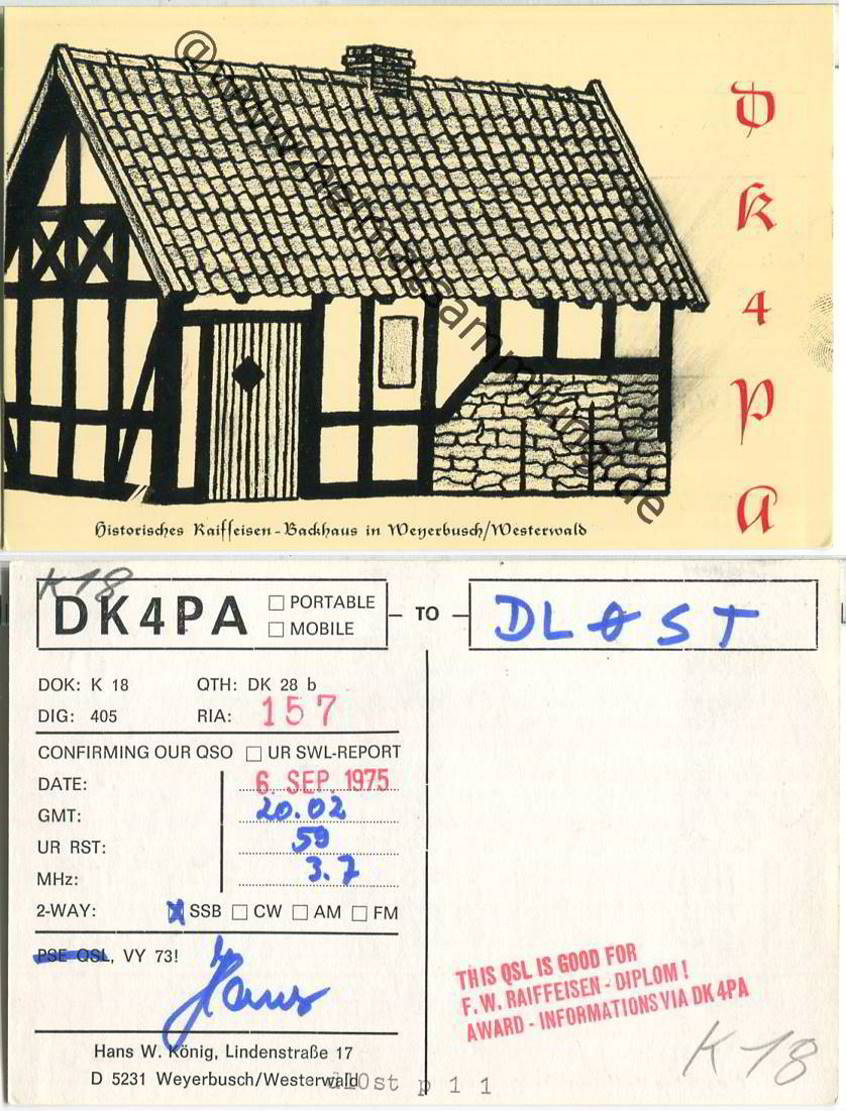 D
K
4
P
A
Historisches Raiffeisen-Backhaus in Weyerbusch/Westerwald
K18
DK4PA
PORTABLE
MOBILE
TO
DLØST
DOK: K 18 QTH: DK 28 b
DIG: 405 RIA: 157
CONFIRMING OUR QSO UR SWL-REPORT
DATE: 6. SEP. 1975
GMT: 20.02
UR RST: 59
MHz: 3.7
2-WAY: X SSB CW AM FM
PSE QSL, VY 73!
Hans
THIS QSL IS GOOD FOR
F. W. RAIFFEISEN - DIPLOM!
AWARD - INFORMATIONS VIA DK4PA
K18
Hans W. König, Lindenstraße 17
D 5231 Weyerbusch/Westerwald
dl0st p 1 1